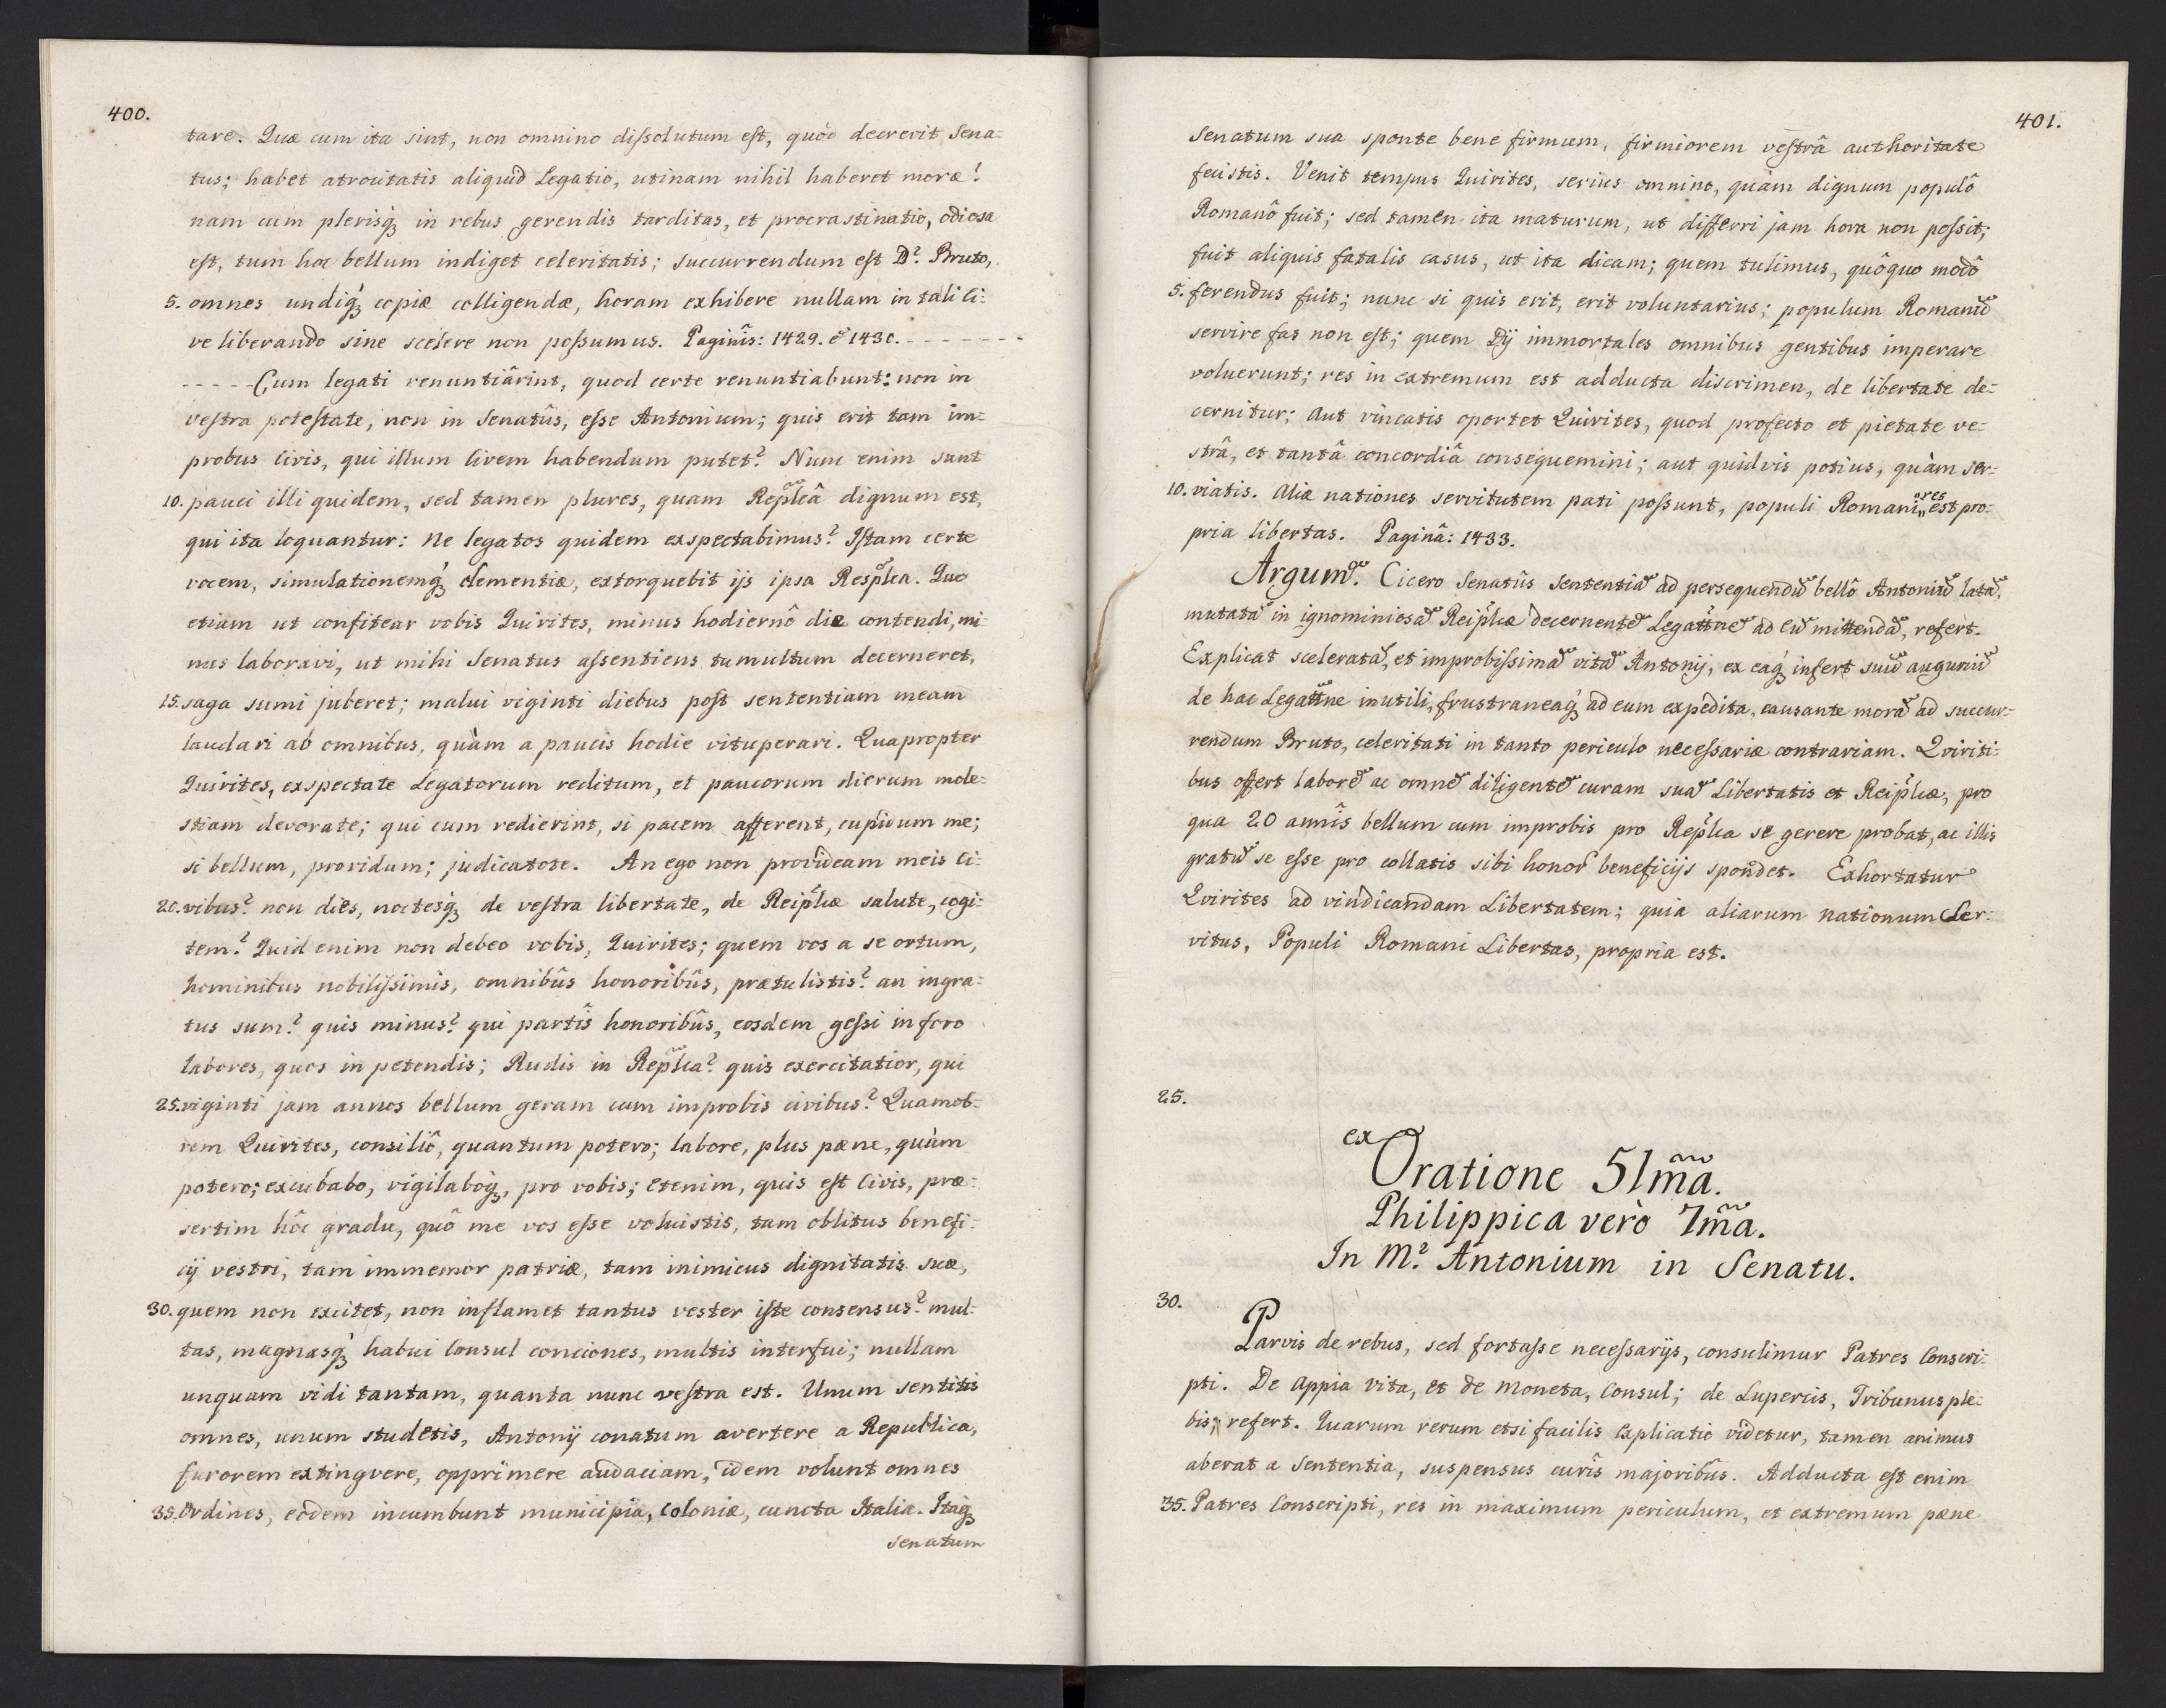 400.
tare. Quæ cum ita sint, non omnino dissolutum est, quòd decrevit Sena=
tus; habet atrocitatis aliquid Legatio, utinam nihil haberet moræ!
nam cum plerisq́ꝫ in rebus gerendis tarditas, et procrastinatio, odiosa
est, tum hoc bellum indiget celeritatis; succurrendum est D? Bruto,
5. omnes undiq́ꝫ copiæ colligendæ, horam exhibere nullam in tali Ci:
ve liberando sine scelere non possumus. Paginîs: 1429. & 1430. - - - - - - - -
- - - - - Cum legati renuntiârint, quod certe renuntiabunt: non in
vestra potestate, non in Senatûs, esse Antonium; quis erit tam im=
probus Civis, qui illum Civem habendum putet? Nunc enim sunt
10. pauci illi quidem, sed tamen plures, quam Rep̃lcâ dignum est,
qui ita loquantur: Ne legatos quidem exspectabimus? Istam certe
vocem, simulationemq́ꝫ clementiæ, extorquebit ijs ipsa Resp̃lca. Quo
etiam ut confitear vobis Quirites, minus hodiernô die contendi, mi=
nus laboravi, ut mihi Senatus assentiens tumultum decerneret,
15. saga sumi juberet; malui viginti diebus post sententiam meam
laudari ab omnibus, quàm a paucis hodie vituperari. Quapropter
Quirites, exspectate Legatorum reditum, et paucorum dierum mole=
stiam devorate; qui cum redierint, si pacem afferent, cupidum me;
si bellum, providum; judicatote. An ego non provideam meis Ci=
20. vibus? non dies, noctesq́ꝫ de vestra libertate, de Reip̃lcæ salute, cogi:
tem? Quid enim non debeo vobis, Quirites; quem vos a se ortum,
hominibus nobilissimis, omnibûs honoribûs, prætulistis? an ingra=
tus sum? quis minus? qui partîs honoribûs, eosdem gessi in foro
labores, quos in petendis; Rudis in Rep̃lca? quis exercitatior, qui
25. viginti jam annos bellum geram cum improbis civibus? Quamob=
rem Quirites, consiliô, quantum potero; labore, plus pæne, quàm
potero; excubabo, vigilaboq́ꝫ, pro vobis; Etenim, quis est Civis, præ=
sertim hôc gradu, quô me vos esse voluistis, tam oblitus benefi=
cij vestri, tam immemor patriæ, tam inimicus dignitatis suæ,
30. quem non excitet, non inflamet tantus vester iste consensus? mul=
tas, magnasq́ꝫ habui Consul conciones, multis interfui; nullam
unquam vidi tantam, quanta nunc vestra est. Unum sentitis
omnes, unum studetis, Antonij conatum avertere a Republica,
furorem extingvere, opprimere audaciam, idem volunt omnes
35. Ordines, eòdem incumbunt municipia, coloniæ, cuncta Italia. Itaq́ꝫ
Senatum
401.
Senatum sua sponte bene firmum, firmiorem vestrâ authoritate
fecistis. Venit tempus Quirites, serius omnino, quàm dignum populô
Romanô fuit; sed tamen ita maturum, ut differri jam hora non possit;
fuit aliquis fatalis casus, ut ita dicam; quem tulimus, quôquo modô
5. ferendus fuit; nunc si quis erit, erit voluntarius; populum Romanũ
servire fas non est; quem Dij immortales omnibus gentibus imperare
voluerunt; res in extremum est adducta discrimen, de libertate de=
cernitur; Aut vincatis oportet Quirites, quod profecto et pietate ve=
strâ, et tantâ concordiâ consequemini; aut quidvis potius, quàm ser=
10. viatis. Aliæ nationes servitutem pati possunt, populi Romani „res„ est pro:
pria libertas. Paginâ: 1433.
Argum̃. Cicero Senatûs Sententiã ad persequendũ bellô Antoniũ latã,
mutatã in ignominiosã Reip̃lcæ decernentẽ Legattnẽ ad eũ mittendã, refert.
Explicat sceleratã, et improbissimã vitã Antonij, ex eaq́ꝫ infert suũ auguriũ
de hac Legattne inutili, frustraneaq́ꝫ ad eum expedita, causante morã ad succur=
rendum Bruto, celeritati in tanto periculo necessariæ contrariam. Qviriti:
bus offert laborẽ ac omnẽ diligentẽ curam suã Libertatis et Reip̃lcæ, pro
qua 20 annîs bellum cum improbis pro Rep̃lca se gerere probat, ac illis
gratũ se esse pro collatis sibi honor̃ beneficijs spondet. Exhortatur
Qvirites ad vindicandam Libertatem; quia aliarum nationum Ser=
vitus, Populi Romani Libertas, propria est.
25.
ex Oratione 51m̃a.
Philippica verò 7m̃a.
In M? Antonium in Senatu.
30.
Parvis de rebus, sed fortasse necessarijs, consulimur Patres Conscri=
pti. De Appia Vita, et de Moneta, Consul; de Lupercis, Tribunus ple=
bis; refert. Quarum rerum etsi facilis explicatio videtur, tamen animus
aberat a Sententia, suspensus curîs majoribûs. Adducta est enim
35. Patres Conscripti, res in maximum periculum, et extremum pæne